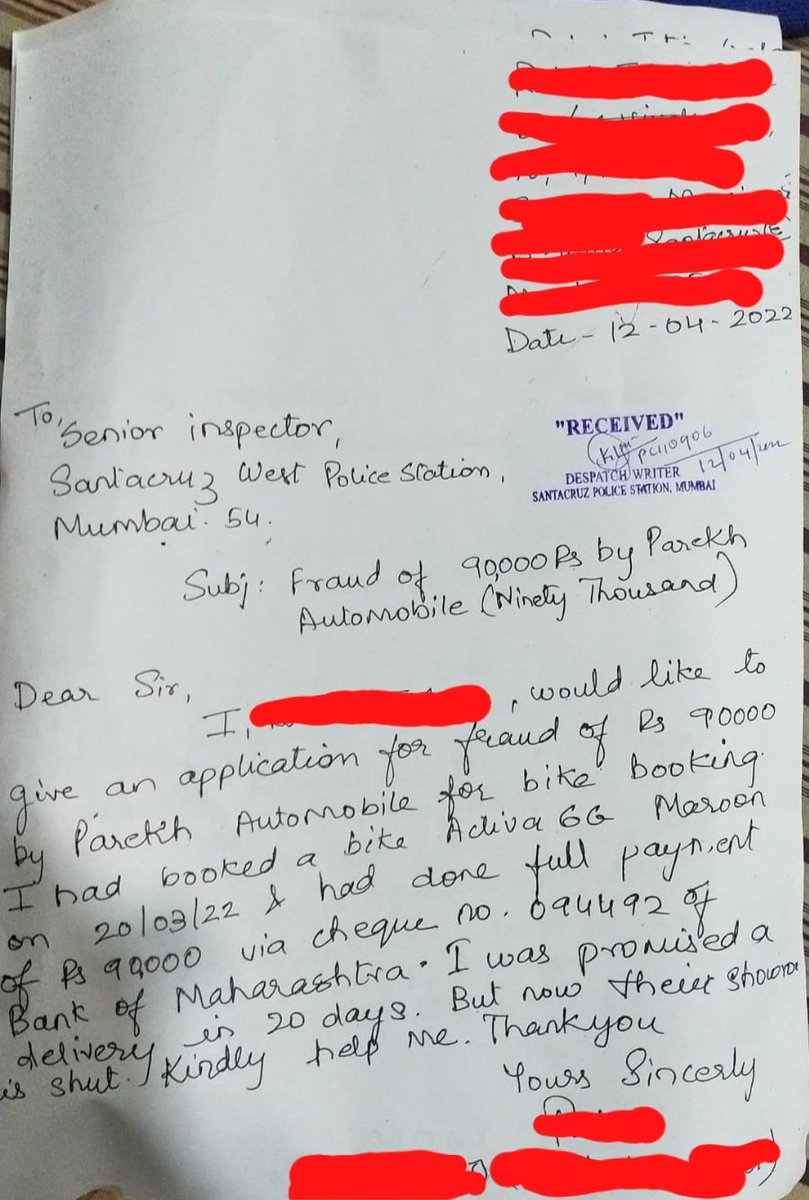 Date - 12-04-2022
To,
Senior inspector,
Santacruz West Police Station,
Mumbai. 54.
"RECEIVED"
12/04/2022
DESPATCH WRITER
SANTACRUZ POLICE STATION, MUMBAI
Subj: Fraud of 90,000 Rs by Parekh
Automobile (Ninety Thousand)
Dear Sir,
I, , would like to
give an application for fraud of Rs 90000
by Parekh Automobile for bike booking.
I had booked a bike Activa 6G Maroon
on 20/03/22 & had done full payment
of Rs 90,000 via cheque no. 094492 of
Bank of Maharashtra. I was promised a
delivery in 20 days. But now their showro
is shut. Kindly help me. Thankyou
Yours Sincerly